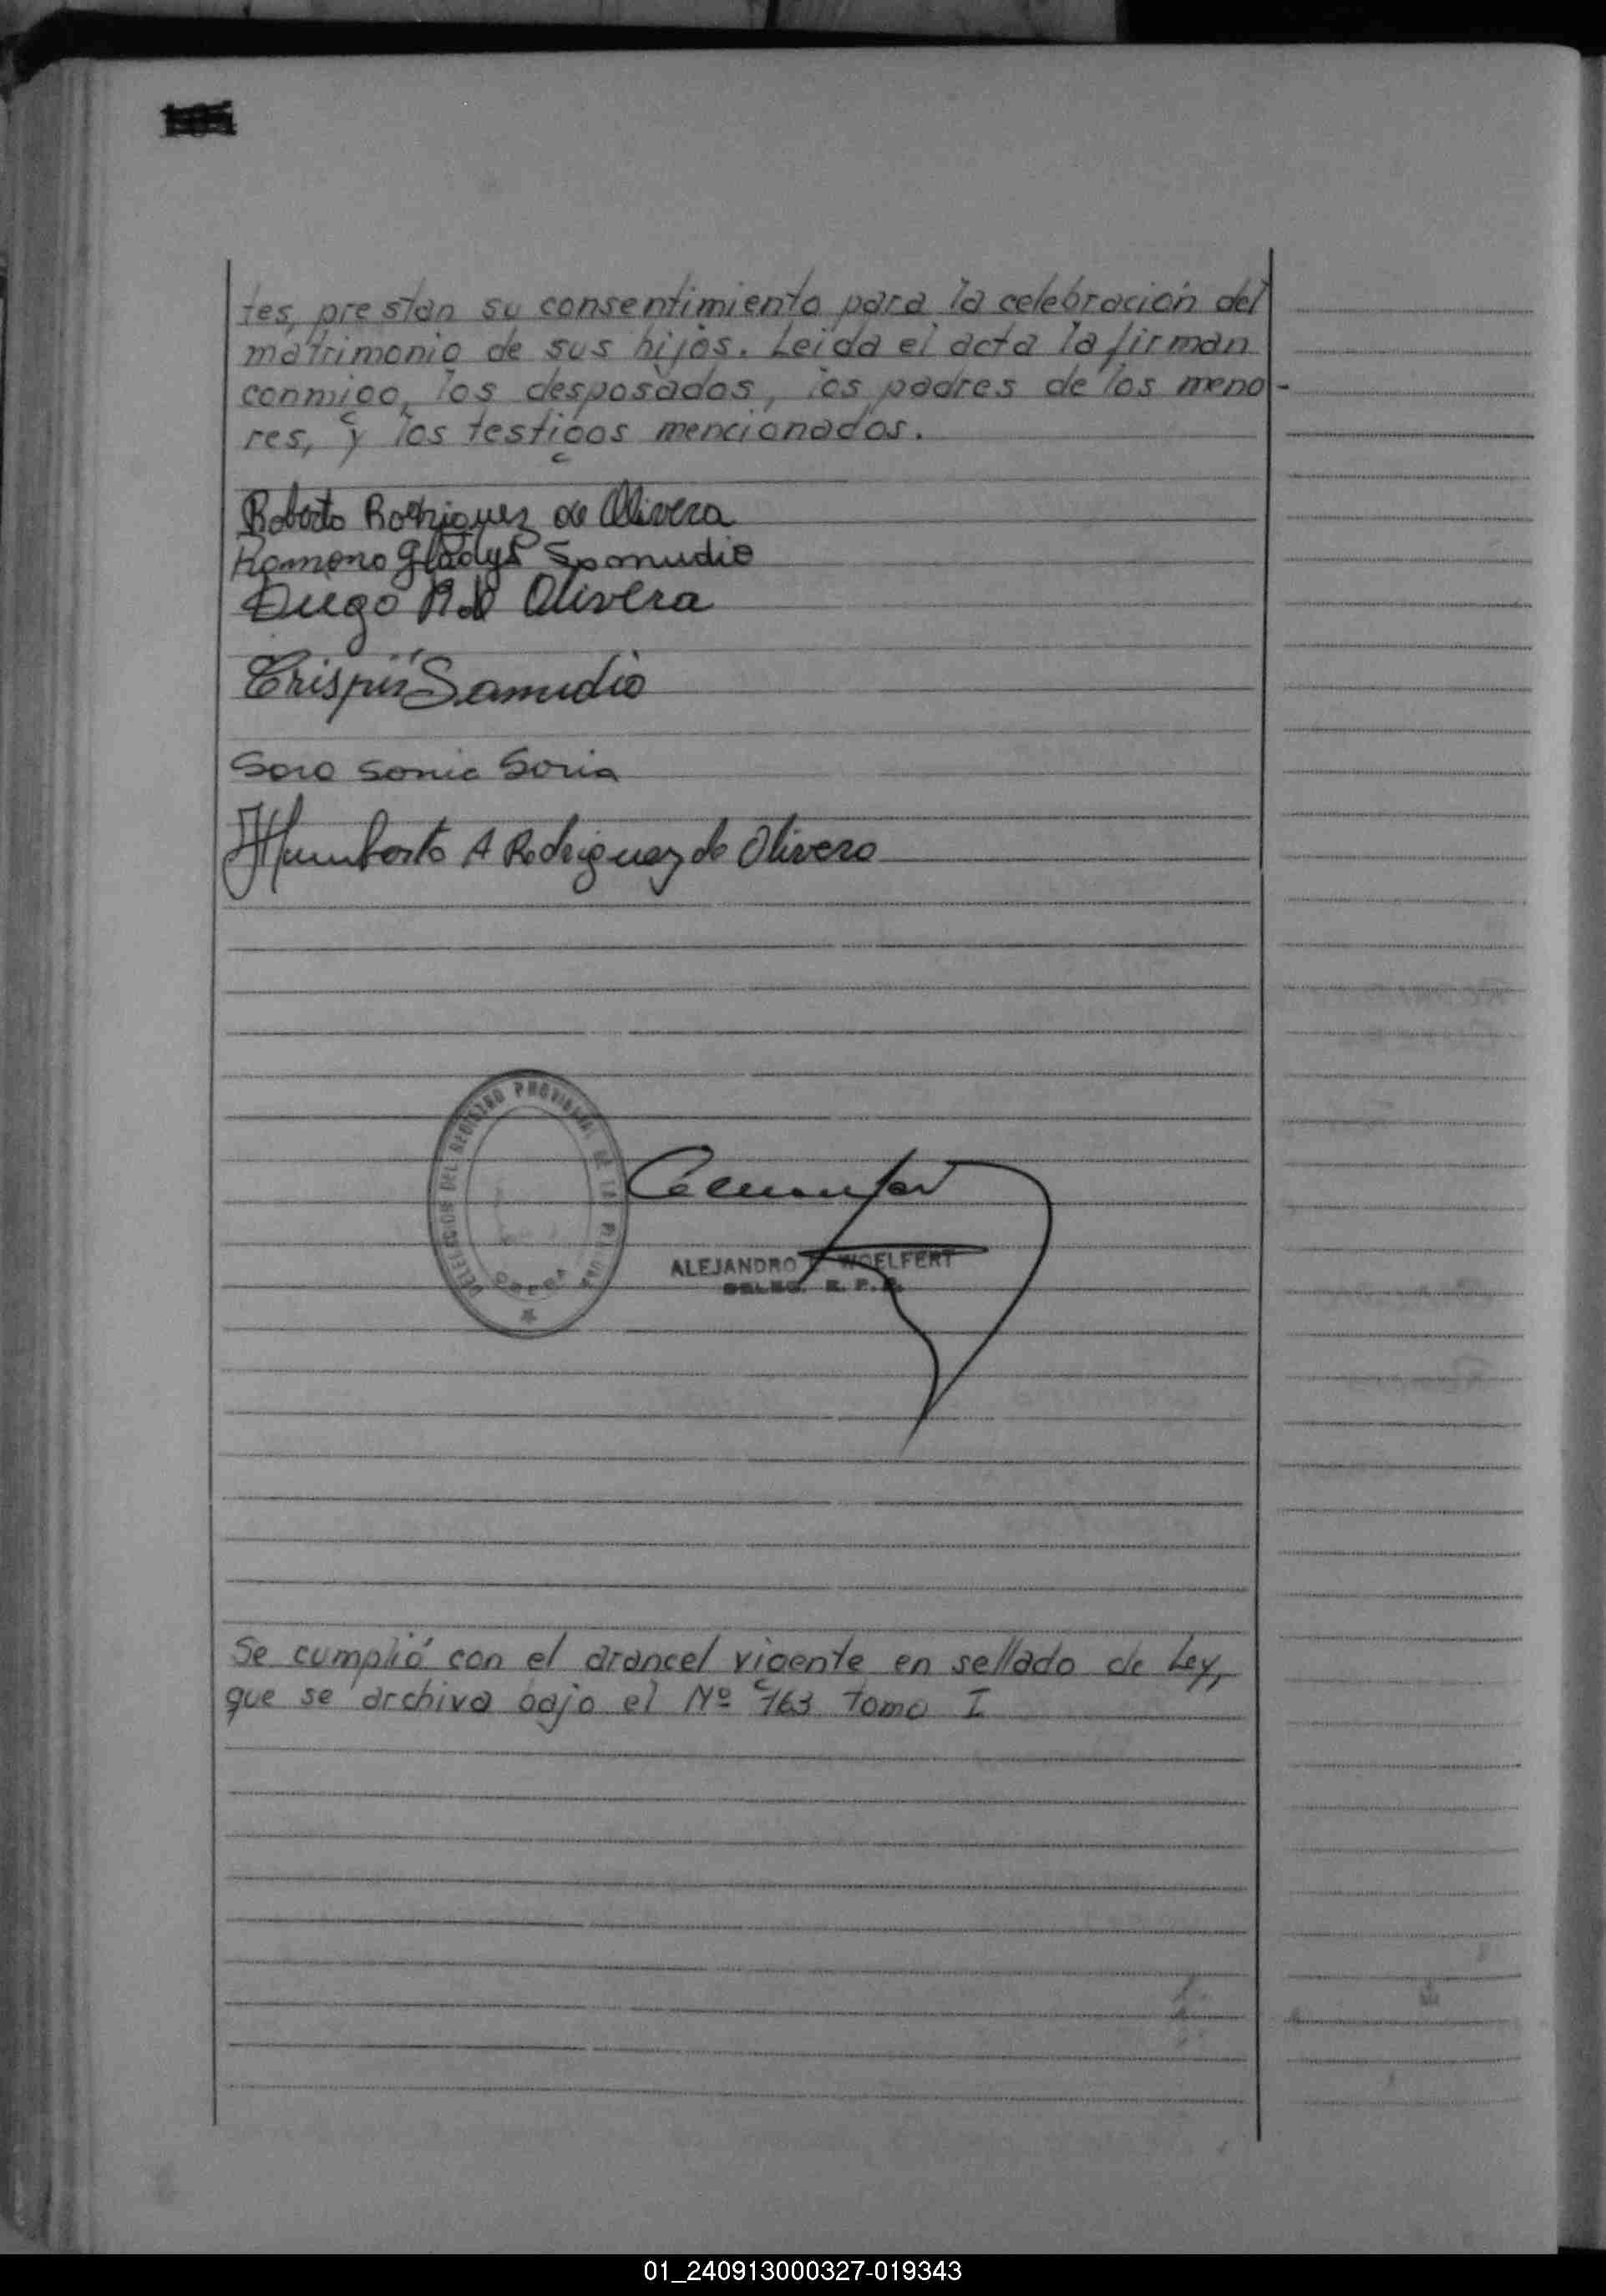 tes, prestan su consentimiento para la celebración del
matrimonio de sus hijos. Leida el acta la firman
conmigo, los desposados, los padres de los meno-
res, y los testigos mencionados.
Roberto Rodriguez de Olivera
Ramona Gladys Samudio
Hugo R. d Olivera
Crispin Samudio
Sara Sonia Soria
Humberto A Rodriguez de Olivera
DELEGACION DEL REGISTRO PROVINCIAL DE LAS PERSONAS
OBERA
ALEJANDRO WOELFERT
DELEG. R. P. P.
Se cumplió con el arancel vigente en sellado de Ley,
que se archiva bajo el Nº 763 Tomo I
01_240913000327-019343